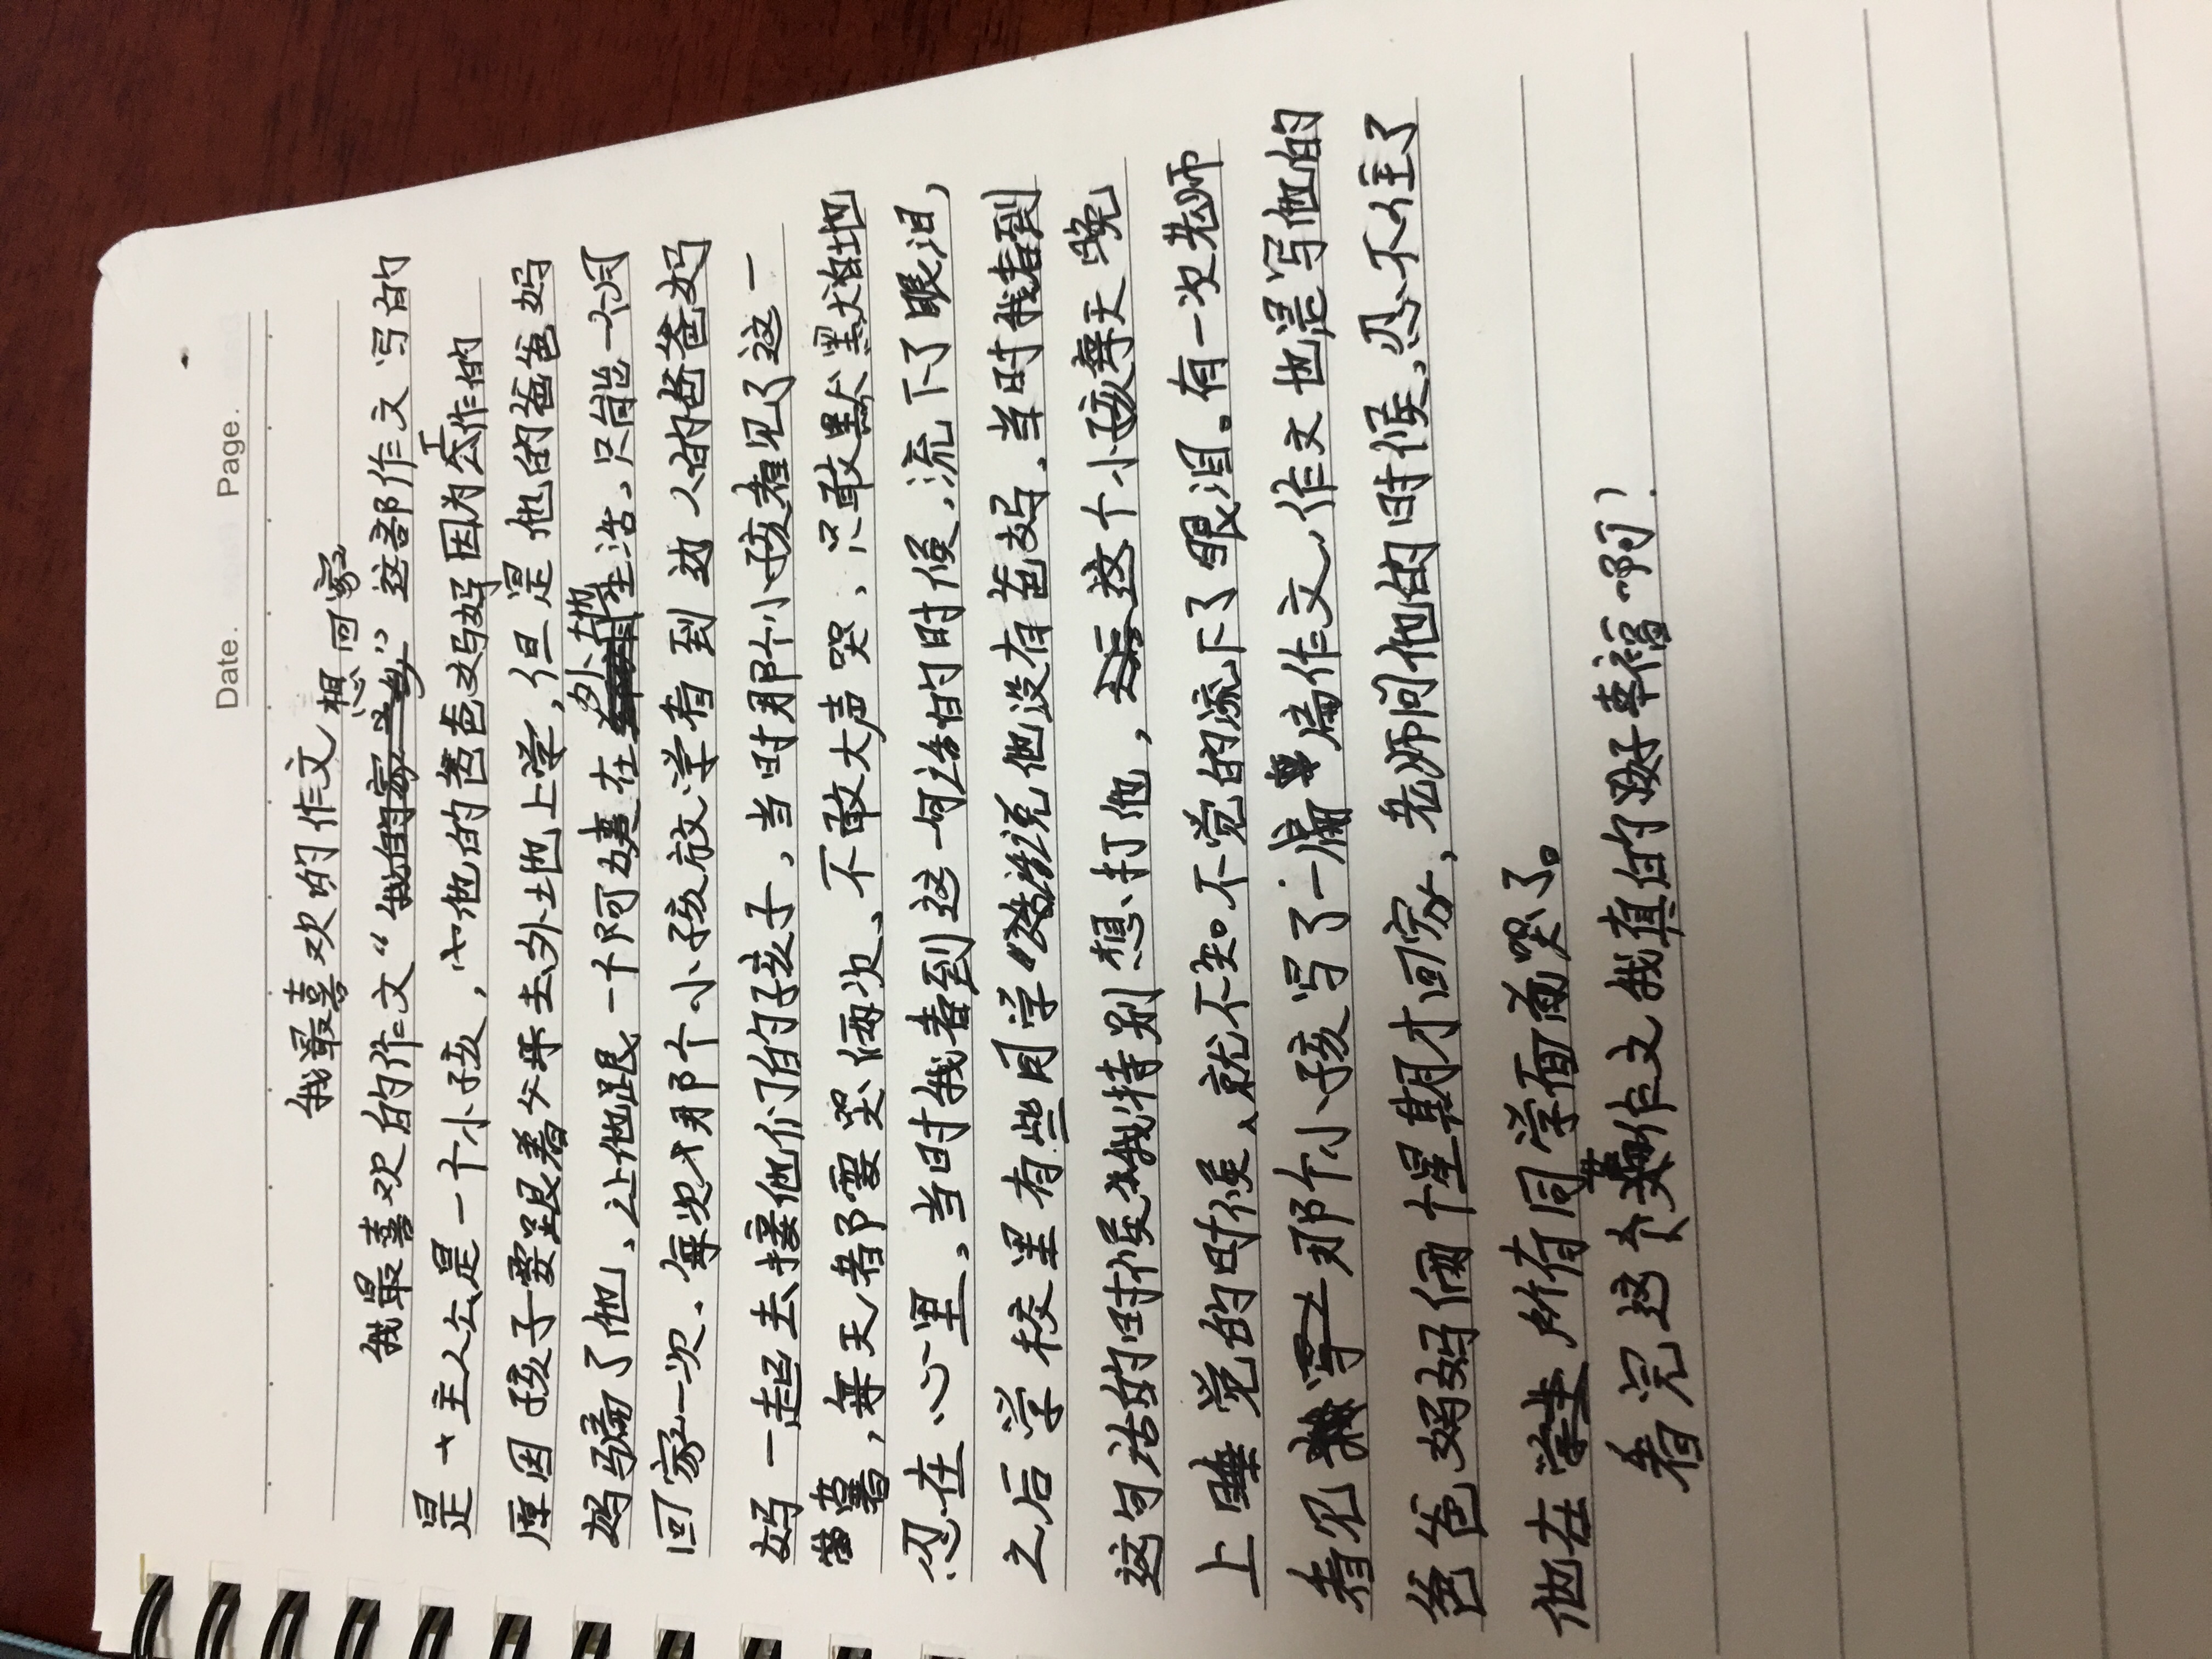 Date. Page.
我最喜欢的作文
我最喜欢的作文“想回家”这部作文写的
是主人公是一个小孩，他的爸爸妈妈因为工作的
原因孩子要跟着爷爷去外地上学，但是他的爸爸妈
妈骗了他、让他跟一个阿姨在外地生活、只能一个月
回家一次、每次那个小孩放学看到边人的爸爸妈
妈一起去接他们的孩子，当时那个小孩看见了这一
幕，每天都要哭俩次、不敢大声哭、只敢默默地
忍在心里、当时我看到这一句话的时候、流下了眼泪，
之后学校里有些同学说他没有爸妈、当时我看到
这句话的时候我特别想打他，这个小孩每天晚
上睡觉的时候、就不知不觉的流下了眼泪。有一次老师
看见那个小孩写了一篇作文、作文也是写他的
爸爸妈妈俩个星期才回家、老师问他的时候，忍不住了
他在所有同学面前哭了。
看完这个作文我真的好幸福啊！